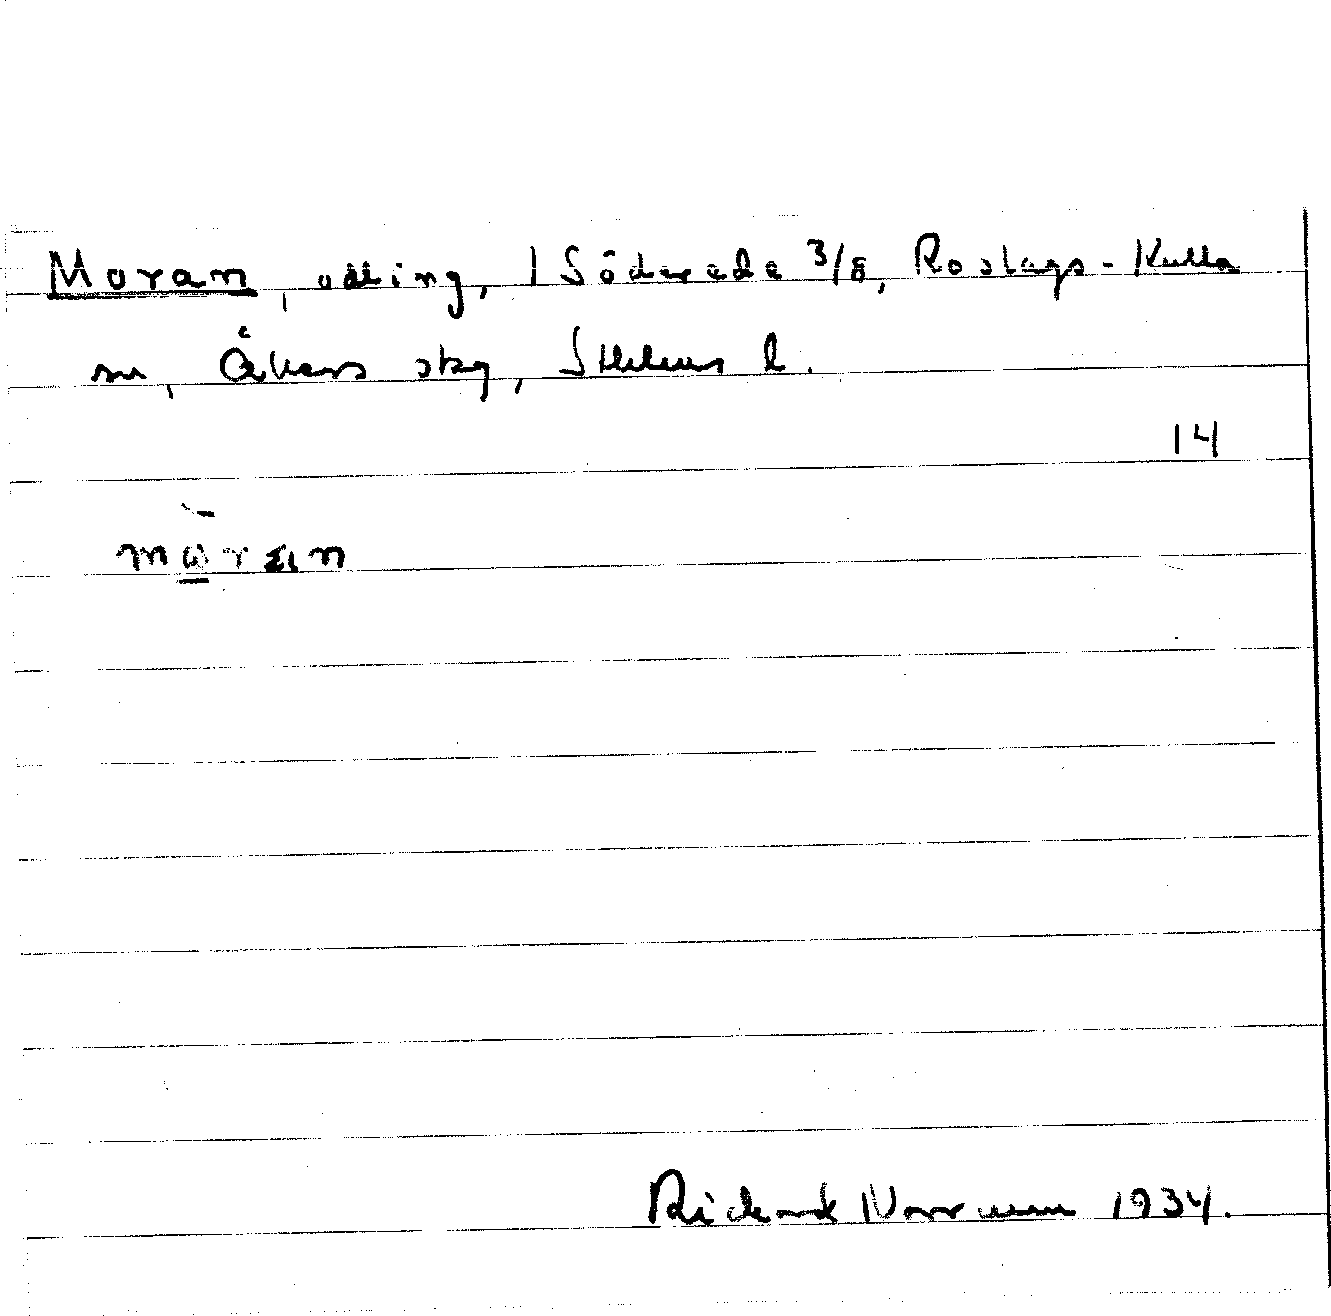 Moran, odling, 1 Söderede 3/8, Roslags-Kulla
sn, Åkers skg, Sthlms l.
14
Rickard Norrman 1934.